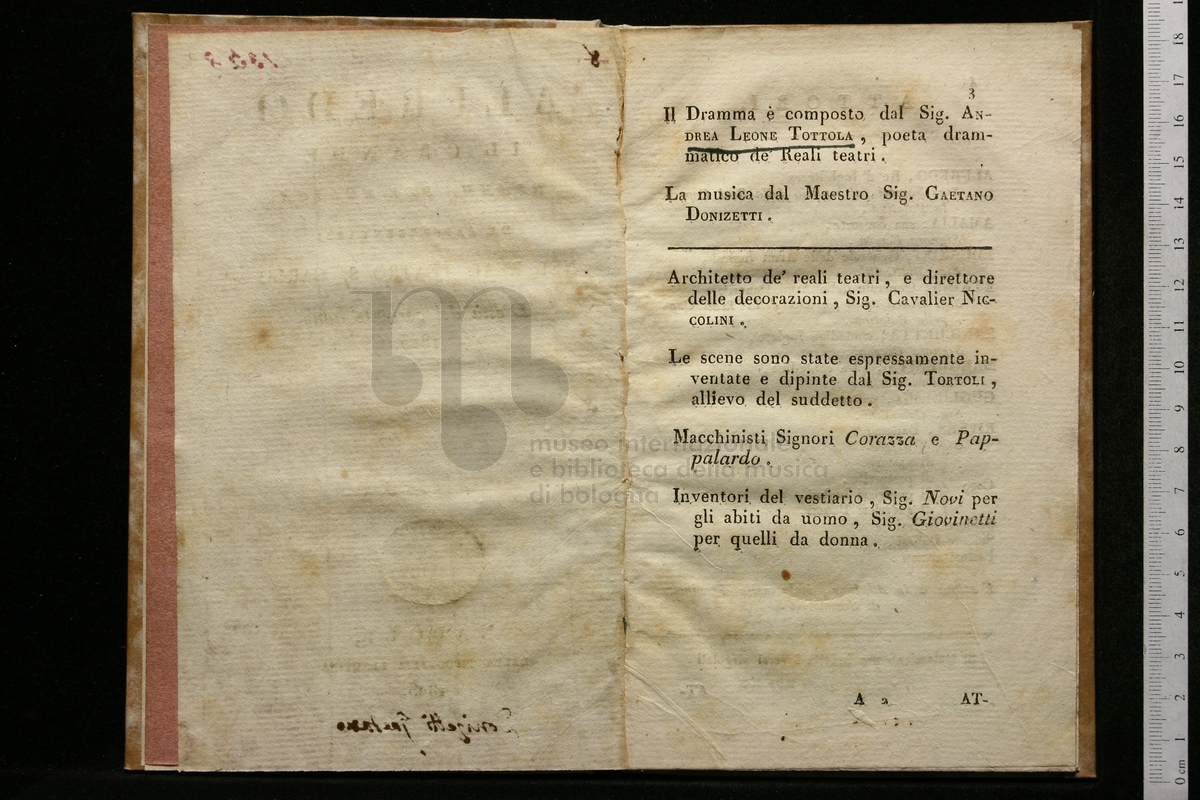 3
Il Dramma è composto dal Sig. AN-
DREA LEONE TOTTOLA, poeta dram-
matico de' Reali teatri.
La musica dal Maestro Sig. GAETANO
DONIZETTI.
Architetto de' reali teatri, e direttore
delle decorazioni, Sig. Cavalier NIC-
COLINI.
Le scene sono state espressamente in-
ventate e dipinte dal Sig. TORTOLI,
allievo del suddetto.
Macchinisti Signori Corazza e Pap-
palardo.
Inventori del vestiario, Sig. Novi per
gli abiti da uomo, Sig. Giovinetti
per quelli da donna.
A 2 AT-
museo internazionale
e biblioteca della musica
di bologna
Donizetti Gaetano
0 cm 1 2 3 4 5 6 7 8 9 10 11 12 13 14 15 16 17 18